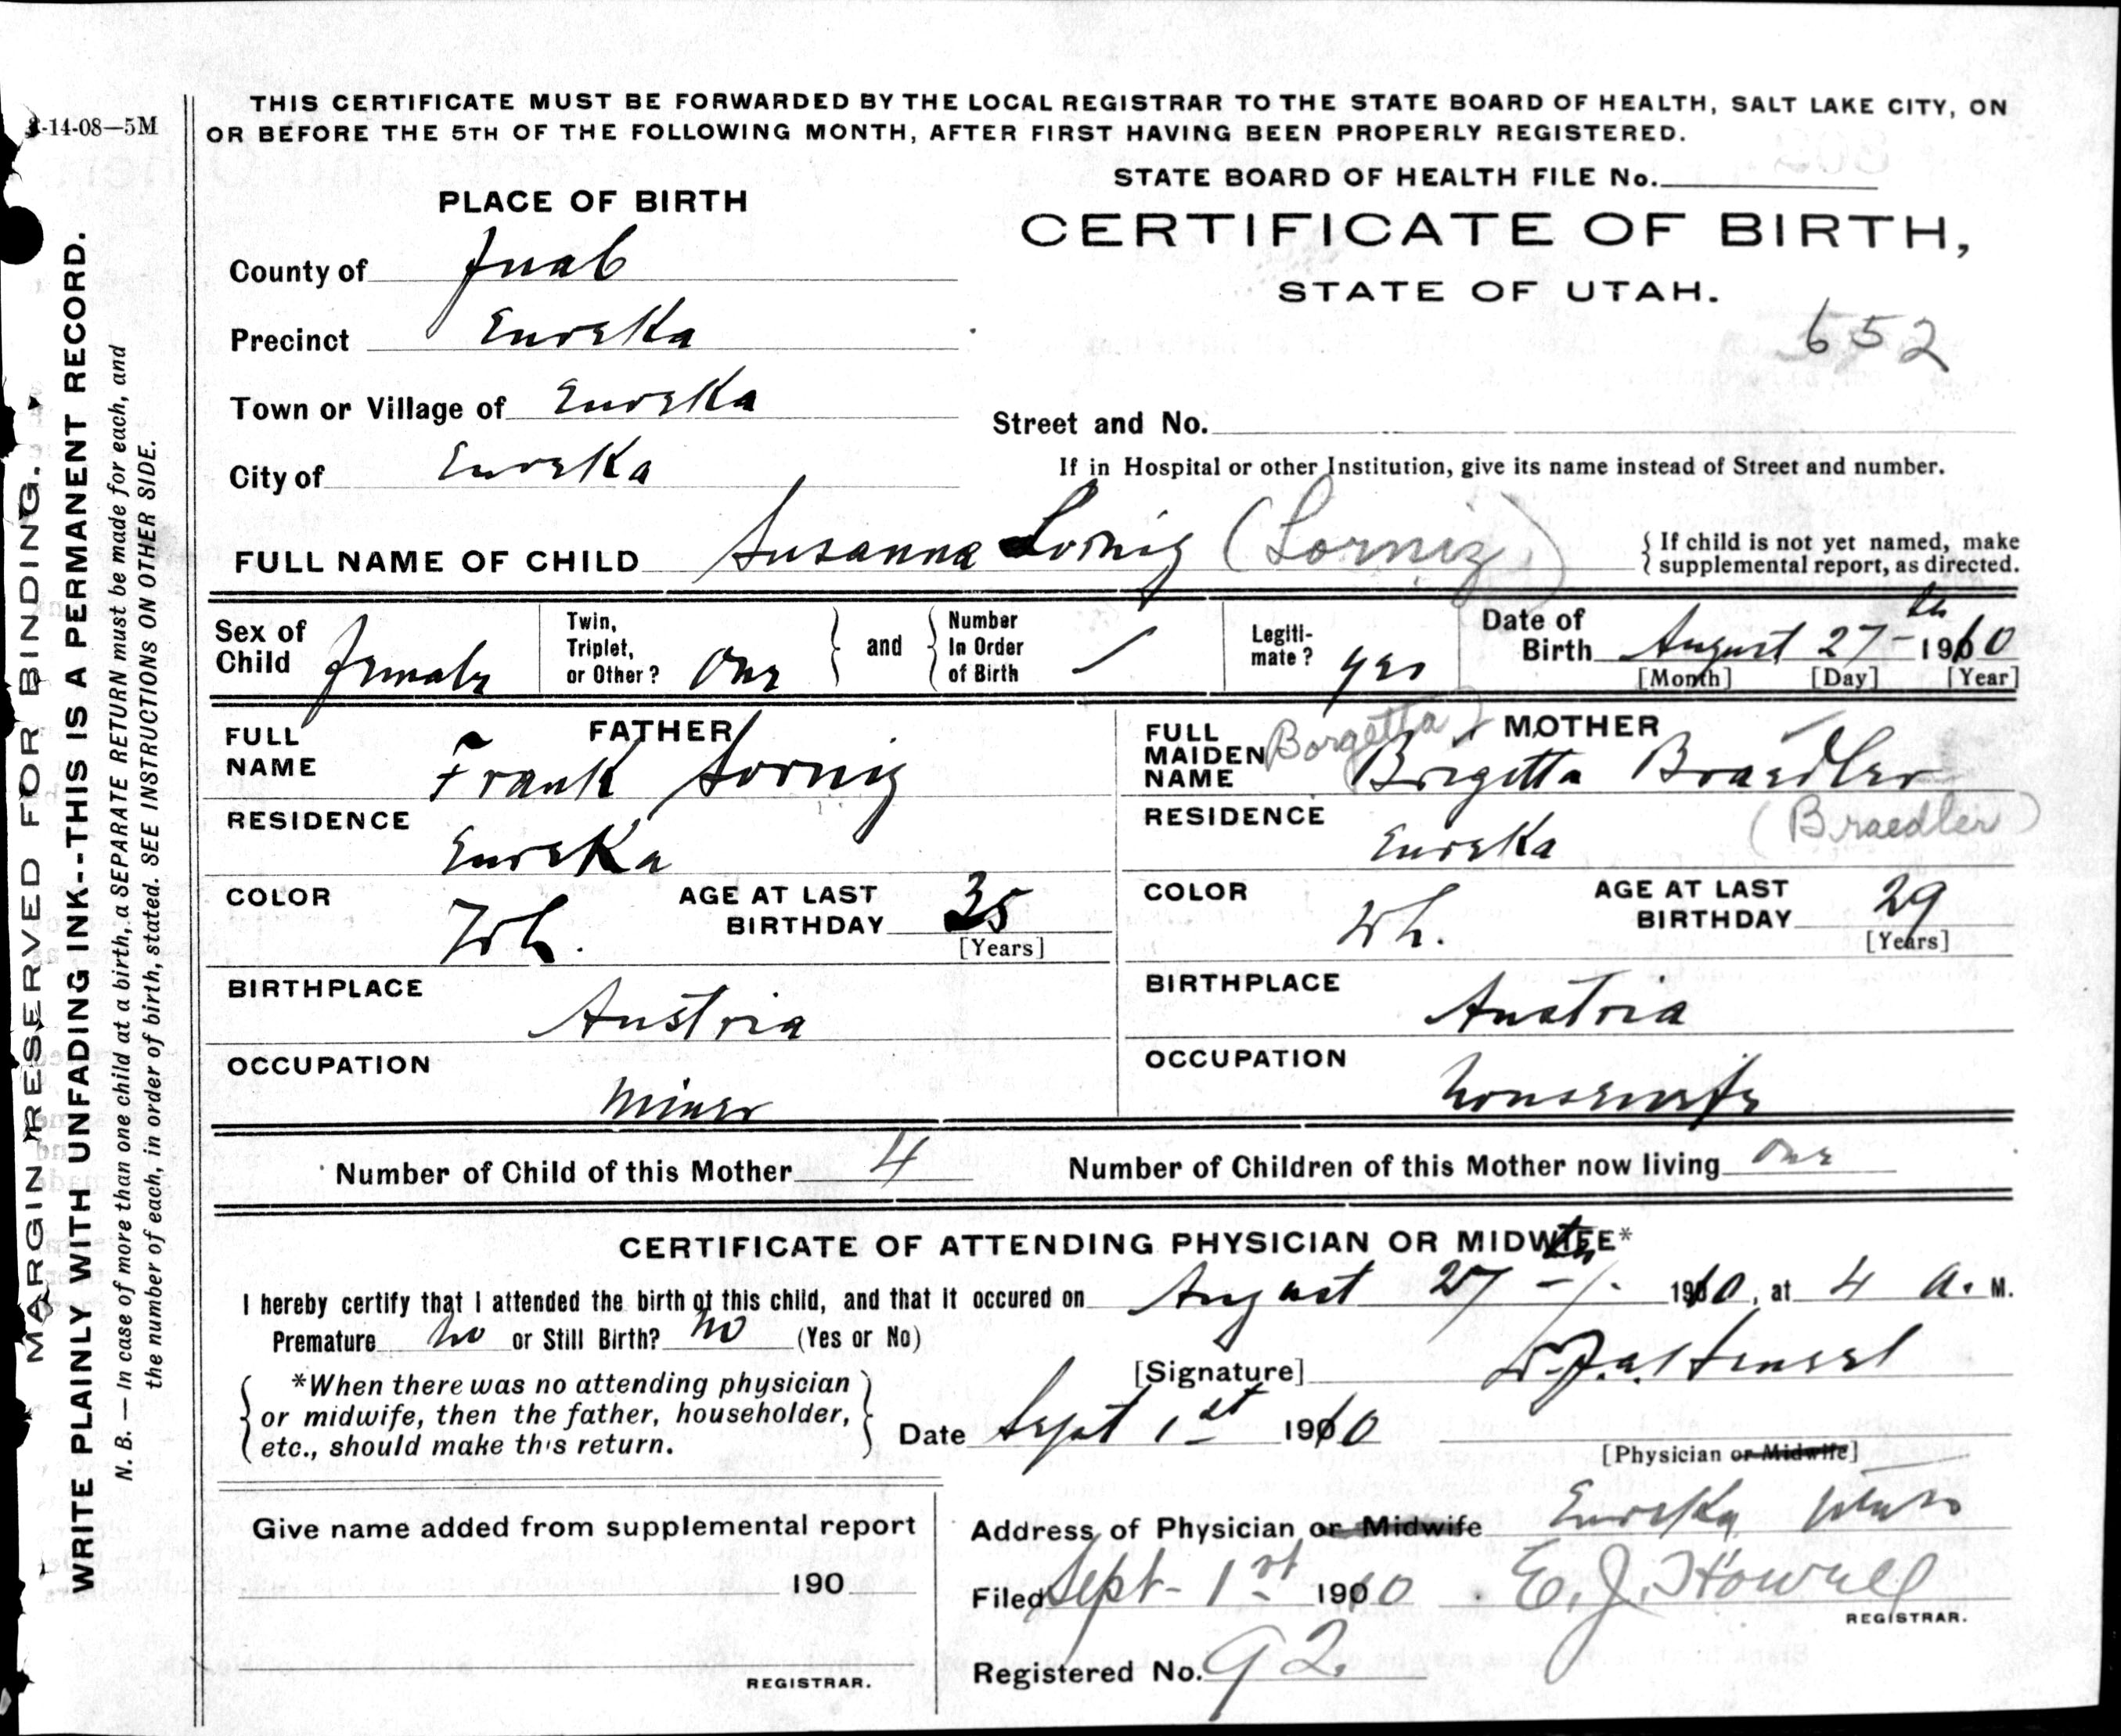 THIS CERTIFICATE MUST BE FORWARDED BY THE LOCAL REGISTRAR TO THE STATE BOARD OF HEALTH, SALT LAKE CITY, ON
OR BEFORE THE 5TH OF THE FOLLOWING MONTH, AFTER FIRST HAVING BEEN PROPERLY REGISTERED.
-14-08—5M
STATE BOARD OF HEALTH FILE No.
PLACE OF BIRTH
CERTIFICATE OF BIRTH,
STATE OF UTAH.
652
County of Juab
Precinct Eureka
Town or Village of Eureka
City of Eureka
Street and No.
If in Hospital or other Institution, give its name instead of Street and number.
FULL NAME OF CHILD Susanna Lornig (Lorniz)
{ If child is not yet named, make
supplemental report, as directed.
Sex of Child female
Twin, Triplet, or Other? One } and { Number In Order of Birth /
Legiti-mate? yes
Date of Birth August 27th 1910
[Month] [Day] [Year]
FATHER
FULL NAME Frank Lornig
RESIDENCE Eureka
COLOR Wh. AGE AT LAST BIRTHDAY 35
[Years]
BIRTHPLACE Austria
OCCUPATION miner
MOTHER
FULL MAIDEN NAME Borgetta Brigitta Braedler
(Braedler)
RESIDENCE Eureka
COLOR Wh. AGE AT LAST BIRTHDAY 29
[Years]
BIRTHPLACE Austria
OCCUPATION housewife
Number of Child of this Mother 4 Number of Children of this Mother now living One
CERTIFICATE OF ATTENDING PHYSICIAN OR MIDWIFE*
I hereby certify that I attended the birth of this child, and that it occured on August 27th 1910, at 4 a. M.
Premature no or Still Birth? no (Yes or No)
[Signature]
{ *When there was no attending physician
or midwife, then the father, householder,
etc., should make this return. }
Date Sept 1st 1910
[Physician or Midwife]
Give name added from supplemental report
190
REGISTRAR.
Address of Physician or Midwife Eureka Utah
Filed Sept - 1st 1910 E. J. Howell
REGISTRAR.
Registered No. 92
MARGIN RESERVED FOR BINDING.
WRITE PLAINLY WITH UNFADING INK--THIS IS A PERMANENT RECORD.
N. B. — In case of more than one child at a birth, a SEPARATE RETURN must be made for each, and
the number of each, in order of birth, stated. SEE INSTRUCTIONS ON OTHER SIDE.